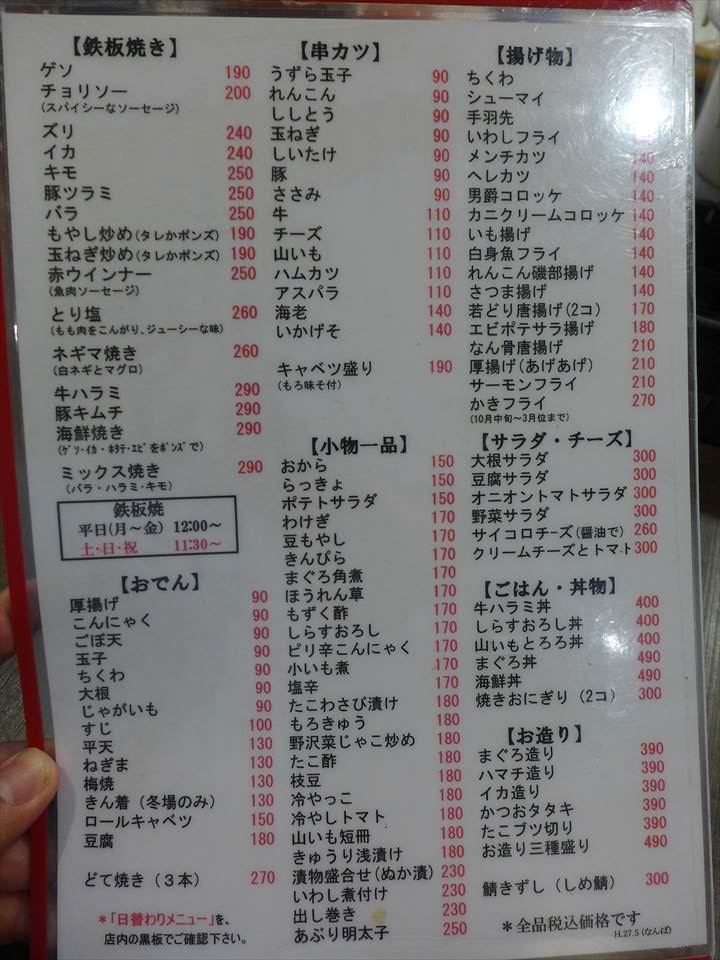 【鉄板焼き】
ゲソ 190
チョリソー 200
(スパイシーなソーセージ)
ズリ 240
イカ 240
キモ 250
豚ツラミ 250
バラ 250
もやし炒め(タレかポンズ) 190
玉ねぎ炒め(タレかポンズ) 190
赤ウインナー 250
(魚肉ソーセージ)
とり塩 260
(もも肉をこんがり、ジューシーな味)
ネギマ焼き 260
(白ネギとマグロ)
牛ハラミ 290
豚キムチ 290
海鮮焼き 290
(ゲソ・イカ・ホタテ・エビをポンズで)
ミックス焼き 290
(バラ・ハラミ・キモ)
鉄板焼
平日(月～金) 12:00～
土・日・祝 11:30～
【おでん】
厚揚げ 90
こんにゃく 90
ごぼ天 90
玉子 90
ちくわ 90
大根 90
じゃがいも 90
すじ 100
平天 130
ねぎま 130
梅焼 130
きん着（冬場のみ） 130
ロールキャベツ 150
豆腐 180
どて焼き（３本） 270
＊「日替わりメニュー」を、
店内の黒板でご確認下さい。
【串カツ】
うずら玉子 90
れんこん 90
ししとう 90
玉ねぎ 90
しいたけ 90
豚 90
ささみ 90
牛 110
チーズ 110
山いも 110
ハムカツ 110
アスパラ 110
海老 140
いかげそ 140
キャベツ盛り 190
(もろ味そ付)
【小物一品】
おから 150
らっきょ 150
ポテトサラダ 150
わけぎ 170
豆もやし 170
きんぴら 170
まぐろ角煮 170
ほうれん草 170
もずく酢 170
しらすおろし 170
ピリ辛こんにゃく 170
小いも煮 170
塩辛 170
たこわさび漬け 180
もろきゅう 180
野沢菜じゃこ炒め 180
たこ酢 180
枝豆 180
冷やっこ 180
冷やしトマト 180
山いも短冊 180
きゅうり浅漬け 180
漬物盛合せ(ぬか漬) 230
いわし煮付け 230
出し巻き 230
あぶり明太子 250
【揚げ物】
ちくわ
シューマイ
手羽先
いわしフライ
メンチカツ 140
ヘレカツ 140
男爵コロッケ 140
カニクリームコロッケ 140
いも揚げ 140
白身魚フライ 140
れんこん磯部揚げ 140
さつま揚げ 140
若どり唐揚げ(2コ) 170
エビポテサラ揚げ 180
なん骨唐揚げ 210
厚揚げ(あげあげ) 210
サーモンフライ 210
かきフライ 270
(10月中旬～3月位まで)
【サラダ・チーズ】
大根サラダ 300
豆腐サラダ 300
オニオントマトサラダ 300
野菜サラダ 300
サイコロチーズ(醤油で) 260
クリームチーズとトマト 300
【ごはん・丼物】
牛ハラミ丼 400
しらすおろし丼 400
山いもとろろ丼 400
まぐろ丼 490
海鮮丼 490
焼きおにぎり（2コ） 300
【お造り】
まぐろ造り 390
ハマチ造り 390
イカ造り 390
かつおタタキ 390
たこブツ切り 390
お造り三種盛り 490
鯖きずし（しめ鯖） 300
＊全品税込価格です
H.27.5(なんば)